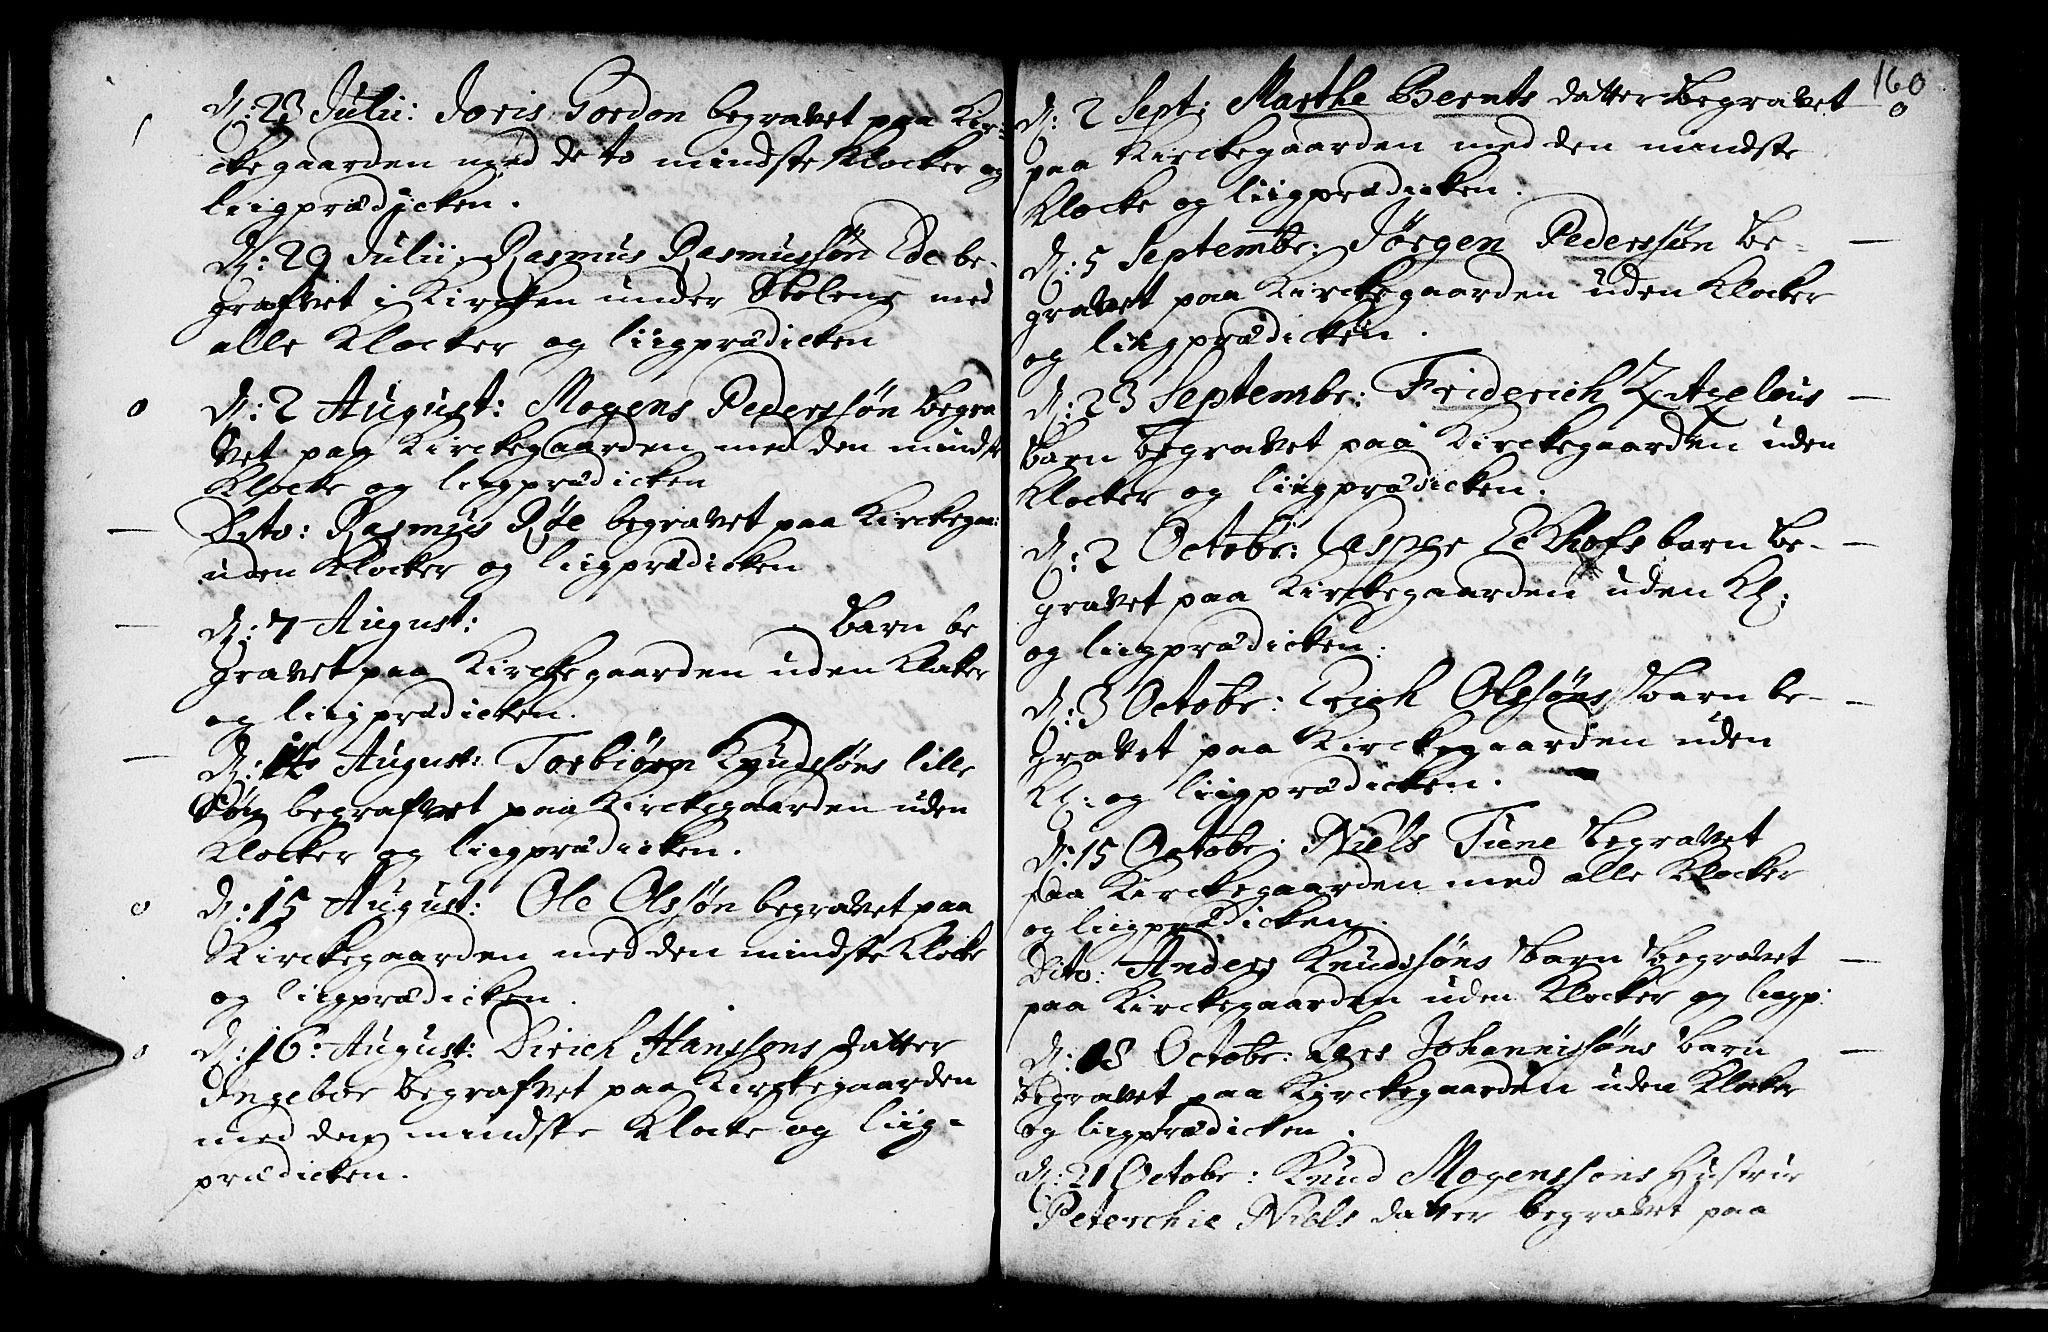 D: 23 Julii: Joris Gordon begravet paa Kir=
ckegaarden med de to mindste Klocker og
liigprædicken.
D: 29 Julii: Rasmus Rasmussøn Ede be-
grafvet i Kircken under Stolene med
alle Klocker og liigprædicken
o
D: 2 August: Mogens Pederssøn begra
vet paa Kirckegaarden med den mindste
Klocke og liigprædicken
Dito: Rasmus Røe begravet paa Kirckegaa:
uden Klocker og liigprædicken
D: 7 August: Barn be
gravet paa Kirckegaarden uden Klocker
og liigprædicken.
D: August: Torbiørn Knudssøns lille
Søn begrafvet paa Kirckegaarden uden
Klocker og liigprædicken.
o
D: 15 August: Ole Olssøn begravet paa
Kirckegaarden med den mindste Klocke
og liigprædicken.
o
D: 16 August: Dirich Hanssøns datter
Ingebor begrafvet paa Kirckegaarden
med den mindste Klocke og liig=
prædicken.
160
D: 2 Sept: Marthe Bernts datter begravet
o
paa Kirckegaarden med den mindste
Klocke og liigprædicken.
D: 5 Septembr: Jørgen Pederssøn be-
gravet paa Kirckegaarden uden Klocker
og liigprædicken.
D: 23 Septembr: Friderich Axelous
barn begravet paa Kirckegaarden uden
Klocker og liigprædicken.
D: 2 Octobr: Casper Eckhofs barn be-
gravet paa Kirckegaarden uden Kl:
og liigprædicken.
D: 3 Octobr: Erich Olssøns barn be-
gravet paa Kirckegaarden uden
Kl: og liigprædicken.
D: 15 Octobr: Niels Tune begravet
paa Kirckegaarden med alle Klocker
og liigprædicken.
Dito: Anders Knudssøns barn begravet
paa Kirckegaarden uden Klocker og liigp:
D: 18 Octobr: Lars Johannissøns barn
begravet paa Kirckegaarden uden Klocker
og liigprædicken.
D: 21 Octobr: Knud Mogenssøns Hustrue
Peterchie Niels datter begravet paa